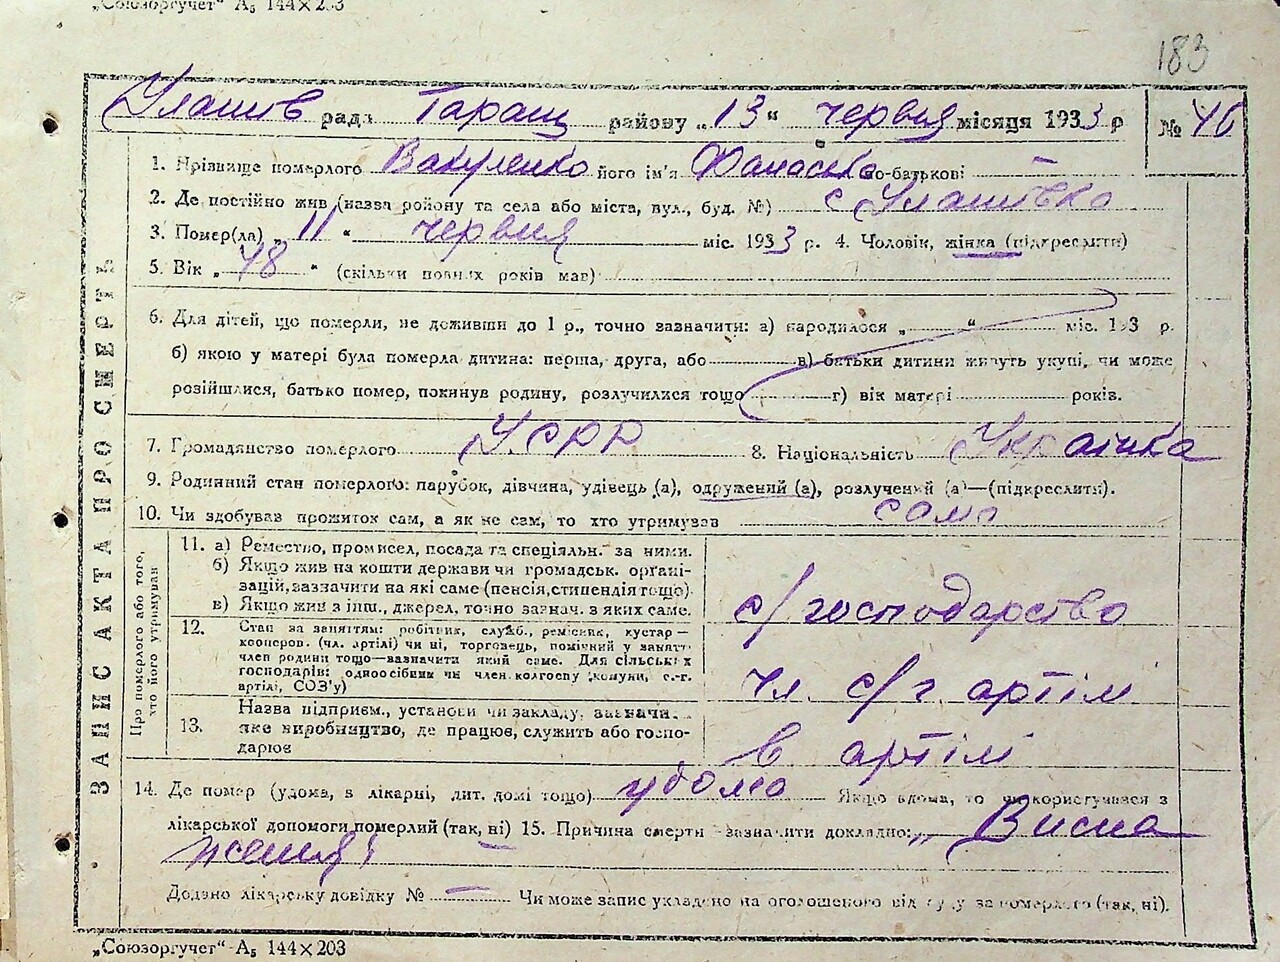 „Союзоргучет“ А₅ 144×203
183
Улашів рада Таращ району „13“ червня місяця 1933 р № 46
1. Прізвище померлого Вакуленко його ім'я Фанаська по-батькові —
2. Де постійно жив (назва району та села або міста, вул., буд. №) с Улашівка
3. Помер(ла) „11“ червня міс. 1933 р. 4. Чоловік, жінка (підкреслити)
5. Вік „48“ (скільки повних років мав)
6. Для дітей, що померли, не доживши до 1 р., точно зазначити: а) народилося „ “ міс. 193 р.
б) якою у матері була померла дитина: перша, друга, або в) батьки дитини живуть укупі, чи може
розійшлися, батько помер, покинув родину, розлучилися тощо г) вік матері років.
7. Громадянство померлого УСРР 8. Національність Українка
9. Родинний стан померлого: парубок, дівчина, удівець (а), одружений (а), розлучений (а)—(підкреслити).
10. Чи здобував прожиток сам, а як не сам, то хто утримував сама
ЗАПИС АКТА ПРО СМЕРТЬ
Про померлого або того,
хто його утримував
11. а) Ремество, промисел, посада та спеціяльн. за ними.
б) Якщо жив на кошти держави чи громадськ. органі-
зацій, зазначити на які саме (пенсія, стипендія тощо)
в) Якщо жив з інш., джерел, точно зазнач. з яких саме.
с/господарство
12. Стан за заняттям: робітник, служб., ремісник, кустар—
кооперов. (чл. артілі) чи ні, торговець, помічний у занятт
член родини тощо—зазначити який саме. Для сільських
господарів: одноосібник чи член колгоспу (комуни, с.-г.
артілі, СОЗ'у)
чл. с/г. артіл
13. Назва підприєм., установи чи закладу, зазначи..
яке виробництво, де працює, служить або госпо-
дарює
в артілі
14. Де помер (удома, в лікарні, дит. домі тощо) удома Якщо вдома, то чи користувався з
лікарської допомоги померлий (так, ні) 15. Причина смерти зазначити докладно: „ Висна
ження
Додано лікарську довідку № — Чи може запис укладено на оголошеного від суду за померлого (так, ні).
„Союзоргучет“ А₅ 144×203